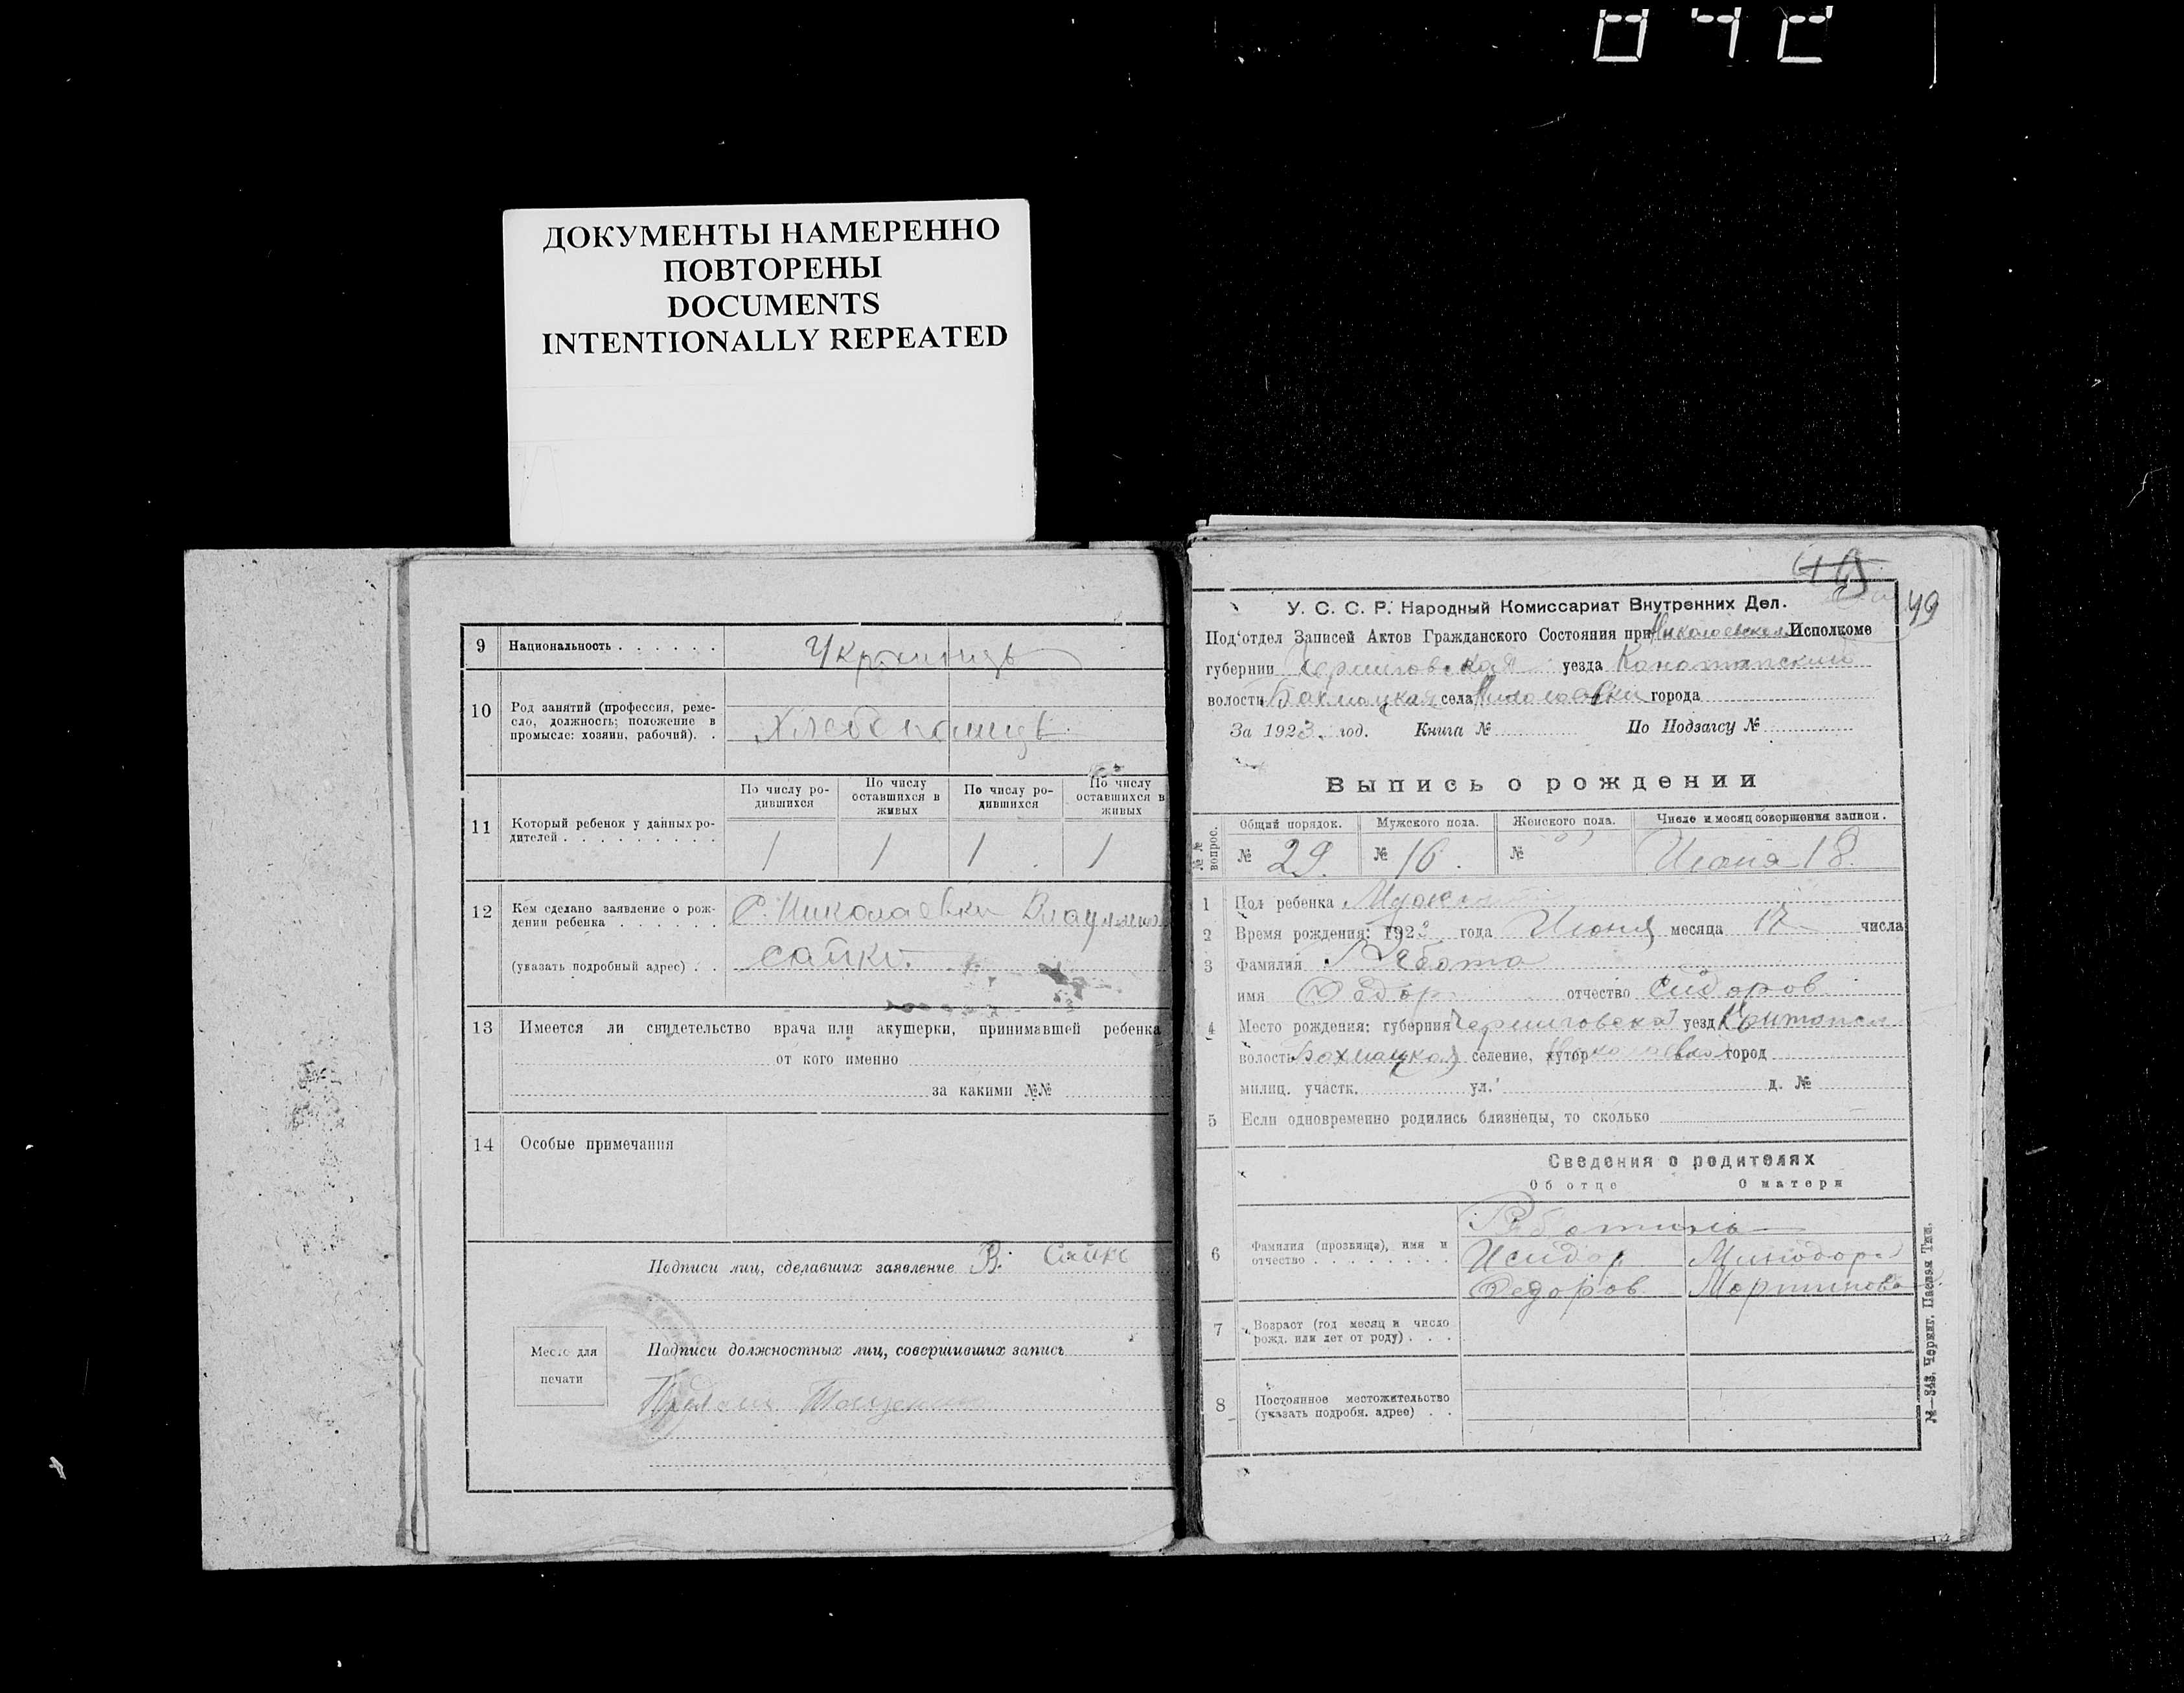 ДОКУМЕНТЫ НАМЕРЕННО
ПОВТОРЕНЫ
DOCUMENTS
INTENTIONALLY REPEATED
9 Национальность . . . . . . Украинцы
10 Род занятий (профессия, реме-
сло, должность; положение в
промысле: хозяин, рабочий). .
По числу ро-
дившихся
По числу
оставшихся в
живых
По числу ро-
дившихся
По числу
оставшихся в
живых
11 Который ребенок у данных ро-
дителей . . . . . . . . . 1 1 1 1
12 Кем сделано заявление о рож-
дении ребенка . . . . . . С. Николаевки
(указать подробный адрес) . . сайко.
13 Имеется ли свидетельство врача или акушерки, принимавшей ребенка
от кого именно
за какими №№
14 Особые примечания
Подписи лиц, сделавших заявление В. Сайко
Место для
печати
Подписи должностных лиц, совершивших запись
45
49
У. С. С. Р. Народный Комиссариат Внутренних Дел.
Под'отдел Записей Актов Гражданского Состояния при Исполкоме
губернии Черниговская уезда Конотопский
волости Бахмацкая села Николаевки города
За 1923 год. Книга № По Подзагсу №
Выпись о рождении
№ № вопрос.
Общий порядок. Мужского пола. Женского пола. Число и месяц совершения записи.
№ 29. № 16. № Июня 18.
1 Пол ребенка
2 Время рождения: 1923 года Июня месяца 17 числа
3 Фамилия
имя Федор отчество Сидоров
4 Место рождения: губерния Черниговская уезд
волость Бахмацкая селение, хутор город
милиц. участк. ул. д. №
5 Если одновременно родились близнецы, то сколько
Сведения о родителях
Об отце О матери
6 Фамилия (прозвище), имя и
отчество . . . . . . . . .
Исидор Минодора
Федоров Мартинова
7 Возраст (год месяц и число
рожд. или лет от роду) . . .
8 Постоянное местожительство
(указать подробн. адрес) . .